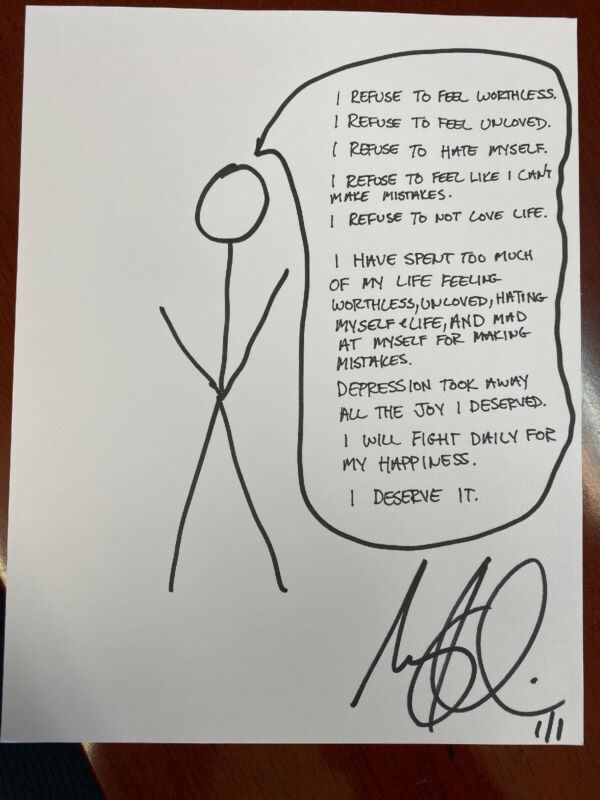 I REFUSE TO FEEL WORTHLESS.
I REFUSE TO FEEL UNLOVED.
I REFUSE TO HATE MYSELF.
I REFUSE TO FEEL LIKE I CAN'T
MAKE MISTAKES.
I REFUSE TO NOT LOVE LIFE.
I HAVE SPENT TOO MUCH
OF MY LIFE FEELING
WORTHLESS, UNLOVED, HATING
MYSELF & LIFE, AND MAD
AT MYSELF FOR MAKING
MISTAKES.
DEPRESSION TOOK AWAY
ALL THE JOY I DESERVED.
I WILL FIGHT DAILY FOR
MY HAPPINESS.
I DESERVE IT.
1/1